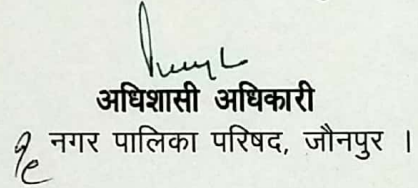 अधिशासी अधिकारी
नगर पालिका परिषद, जौनपुर ।